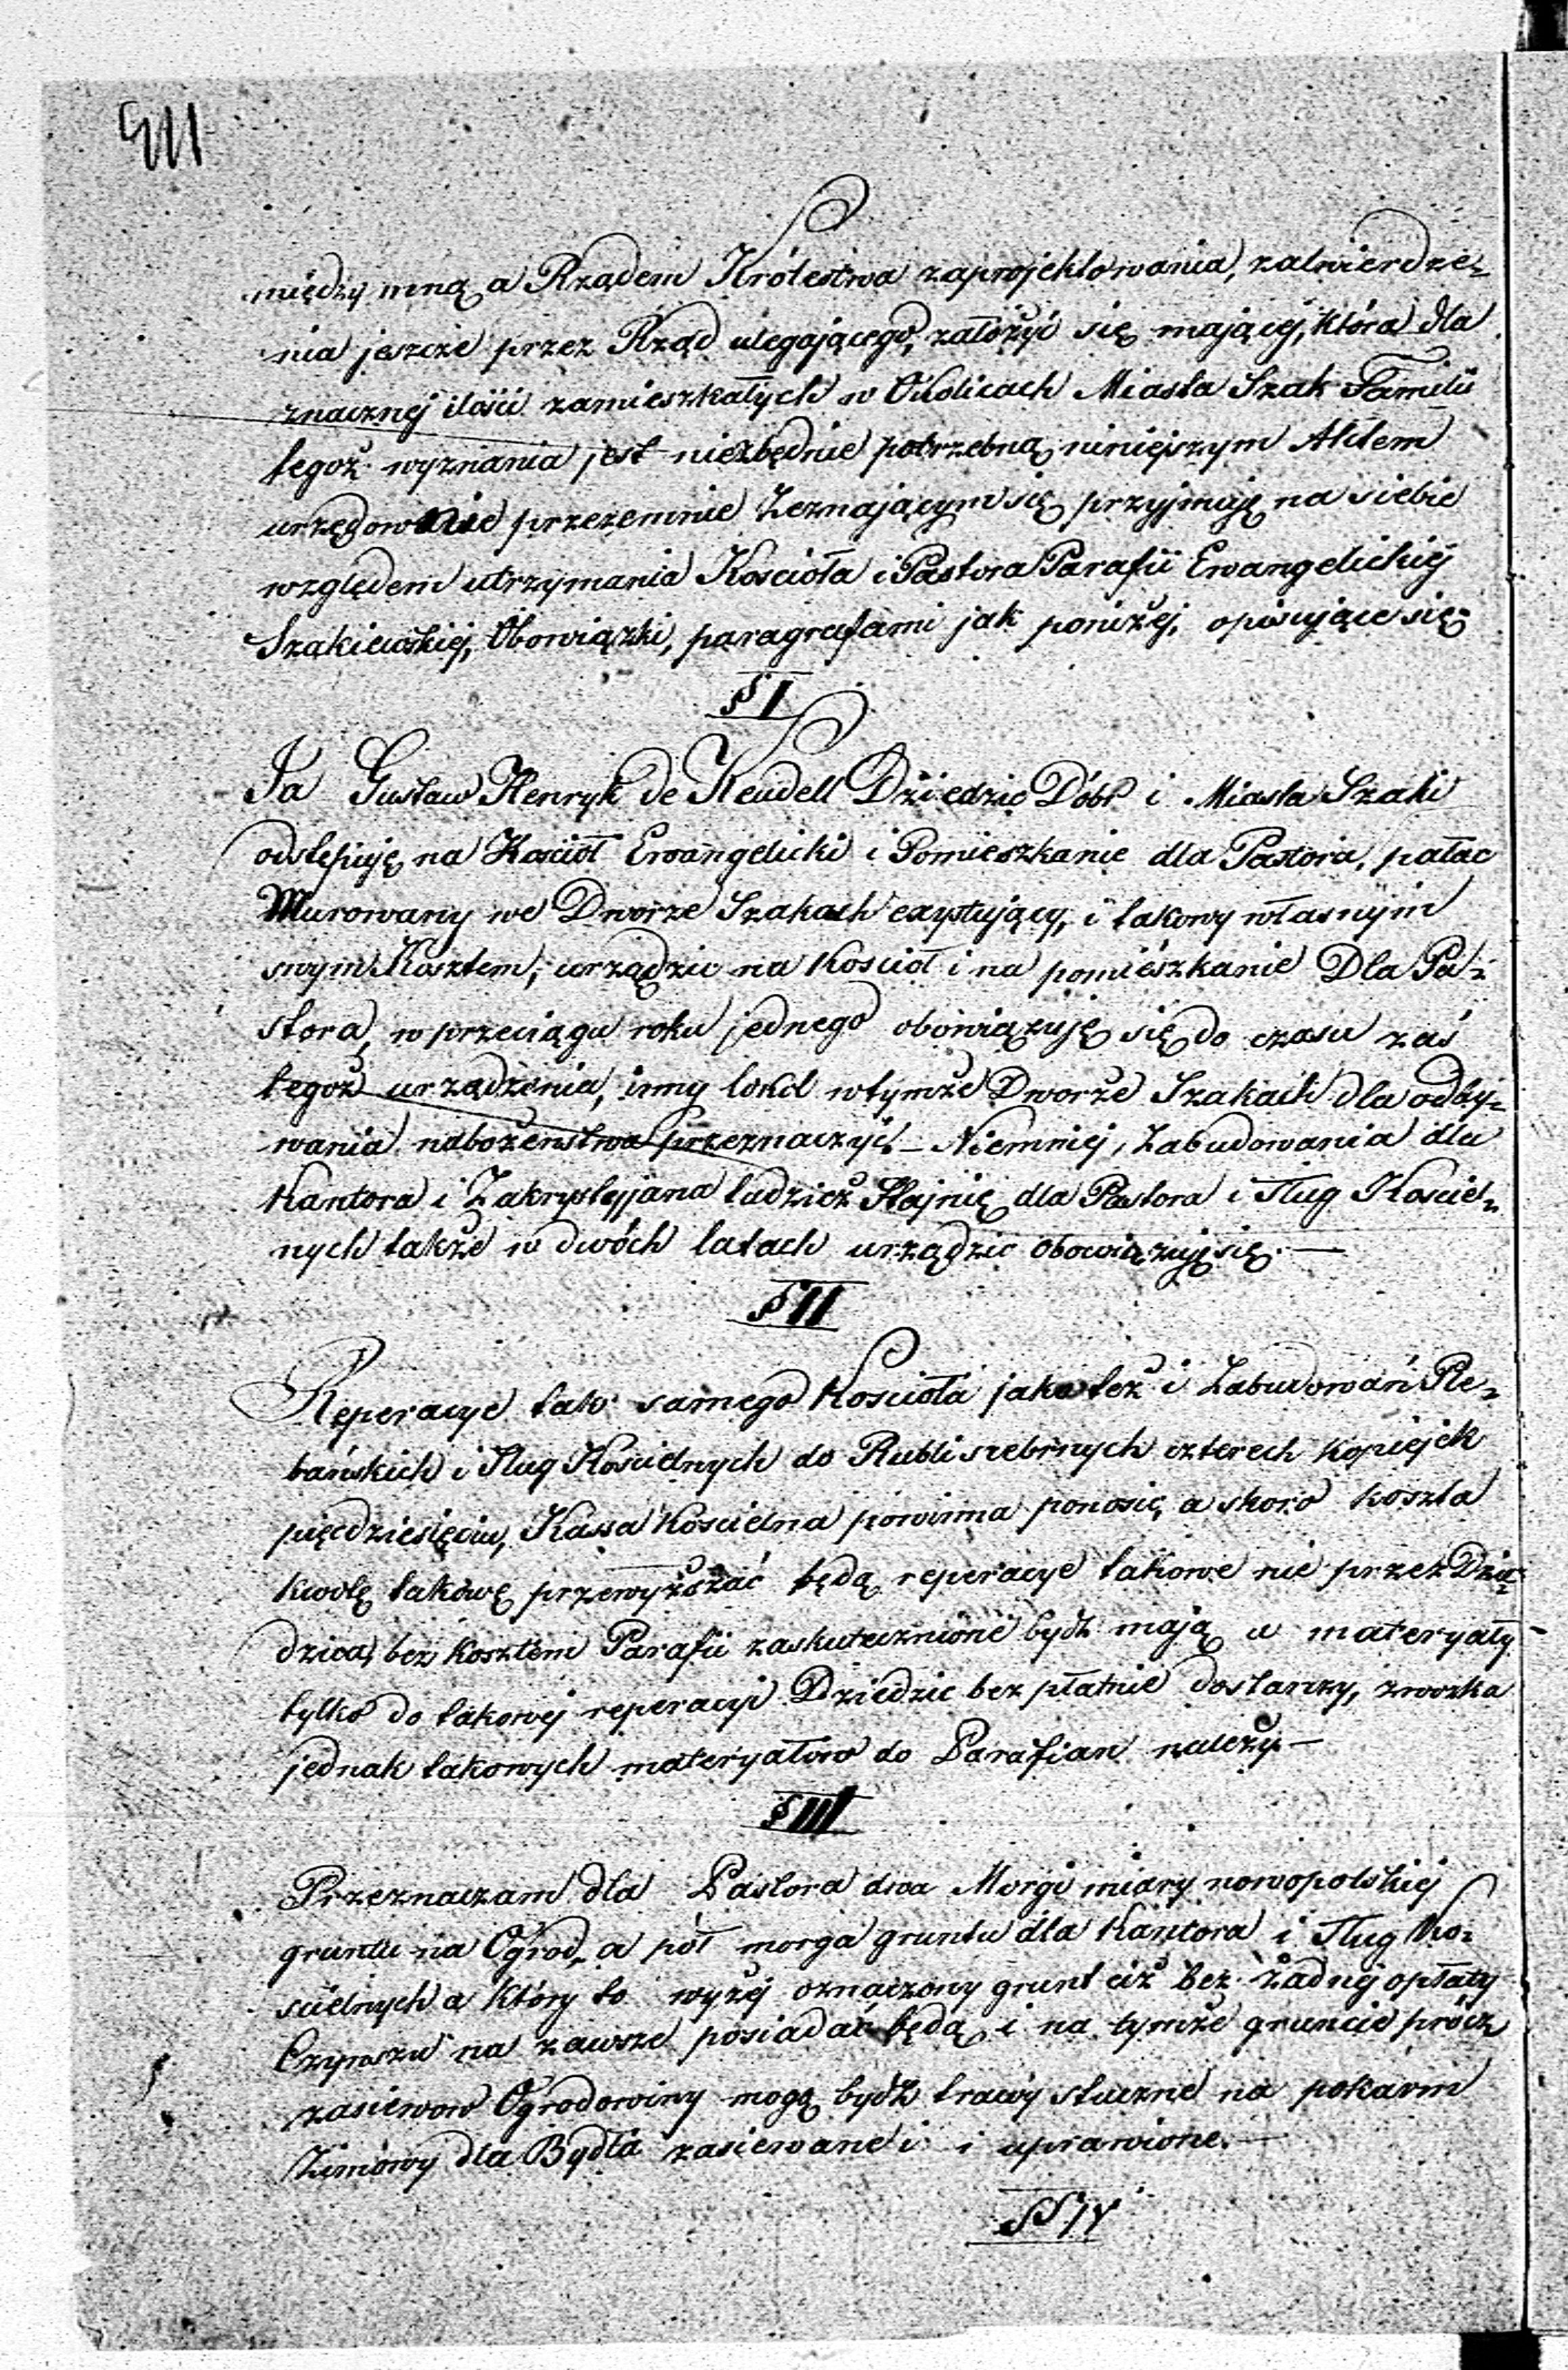 między mną a Rządem Królestwa zaprojektowania, zatwierdze-
nia jeszcze przez Rząd ulegającego, założyć się mającej, która dla
znacznej ilości zamieszkałych w Okolicach Miasta Szak Familii
tegoż wyznania jest niezbędnie potrzebną, niniejszym Aktem
urzędownie przezemnie Zeznającym się przyjmuję na siebie
względem utrzymania Kościoła i Pastora Parafii Ewangelickiej
Szakiewskiej, Obowiązki, paragrafami jak poniżej, opisujące się
§ I
Ja Gustaw Henryk de Keudell Dziedzic Dóbr i Miasta Szaki
odstępuję na Kościół Ewangelicki i Pomieszkanie dla Pastora, pałac
Murowany we Dworze Szakach exystujący, i takowy własnym
swym Kosztem, urządzić na Kościół i na pomieszkanie Dla Pa-
stora, w przeciągu roku jednego obowiązuję się do czasu zaś
tegoż urządzenia, inny lokal w tymże Dworze Szakach dla odby-
wania nabożeństwa przeznaczyć – Niemniej, Zabudowania dla
Kantora i Zakrystyjana tudzież Stajnię dla Pastora i Sług Kościel-
nych także w dwóch latach urządzić obowiązuję się. —
§ II
Reperacye tak samego Kościoła jako też i Zabudowań Ple-
bańskich i Sług Kościelnych do Rubli srebrnych czterech kopiejek
pięćdziesięciu, Kassa Kościelna powinna ponosić, a skoro koszta
kwotę takowę przewyższać będą reperacye takowe nie przez Dzie-
dzica, lecz kosztem Parafii zaskutecznione bydź mają a materyały
tylko do takowej reperacyi Dziedzic bezpłatnie dostarczy, zwozka
jednak takowych materyałów do Parafian należy —
§ III
Przeznaczam dla Pastora dwa Morgi miary nowopolskiej
gruntu na Ogród, a pół morga gruntu dla Kantora i Sług Ko-
ścielnych a który to wyżej oznaczony grunt ciż bez żadnej opłaty
Czynszu na zawsze posiadać będą, i na tymże gruncie prócz
zasiewow Ogrodowiny mogą bydź trawy sztuczne na pokarm
Zimowy dla Bydła zasiewane i i uprawione. —
§ IV